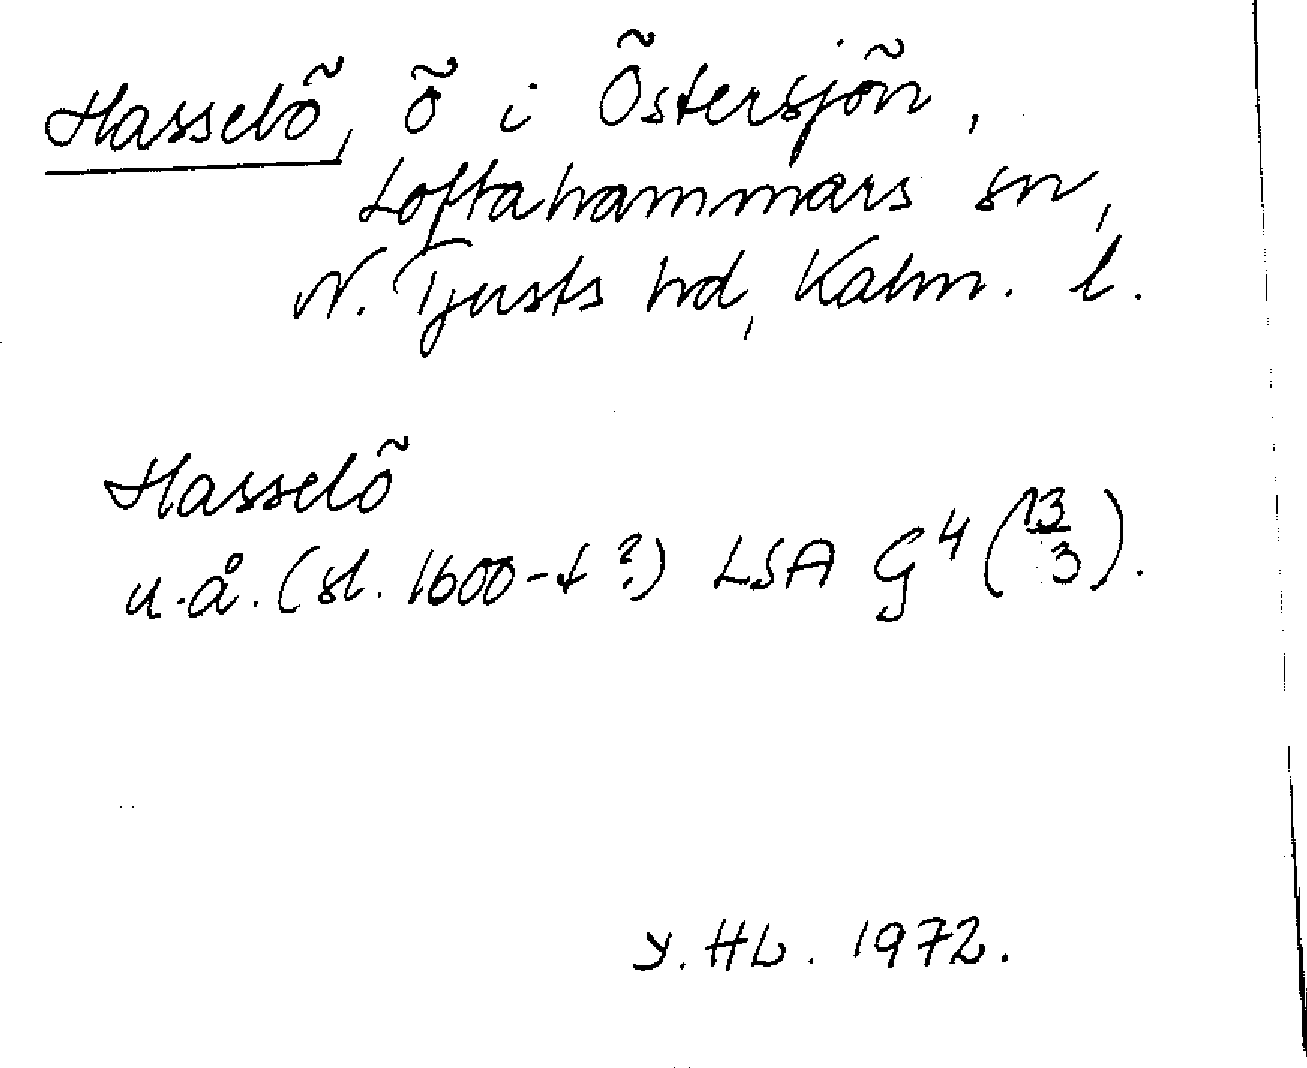 Hasselö, ö i Östersjön,
Loftahammars sn,
N. Tjusts hd, Kalm. l.
Hasselö
u.å. (sl. 1600-t?) LSA G⁴ (13/3).
Y. HL. 1972.